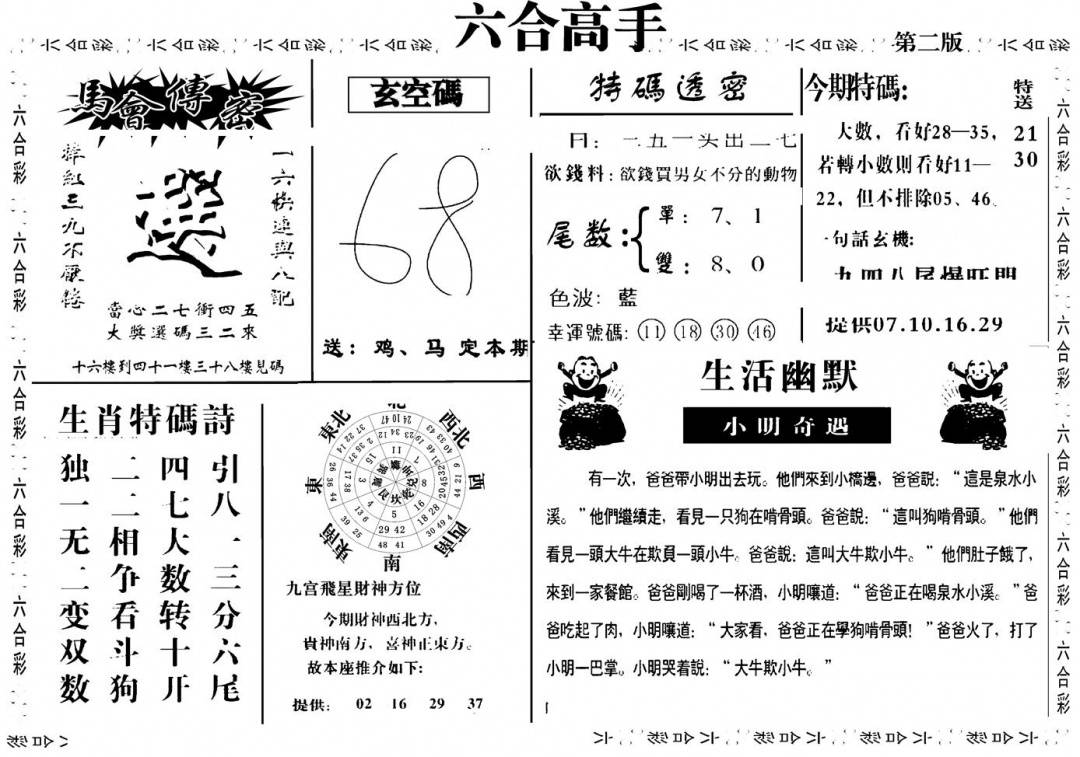 六合高手
第二版
馬會傳密
選
一六快連與八配
三九不厭倦
當心二七衝四五
大獎選碼三二來
十六樓到四十一樓三十八樓見碼
玄空碼
68
送：鸡、马 定本期
特碼透密
欲錢料：欲錢買男女不分的動物
尾数：
單：7、1
雙：8、0
色波：藍
幸運號碼：11 18 30 46
今期特碼：
大數，看好28—35，
若轉小數則看好11—
22，但不排除05、46。
句話玄機：
九四八尾爆旺門
提供07.10.16.29
特送
21
30
生肖特碼詩
引八一三分六尾
四七大数转十开
二二相争看斗狗
独一无二变双数
東北
北
西北
西
西南
南
東南
東
九宫飛星財神方位
今期財神西北方，
貴神南方，喜神正東方。
故本座推介如下：
提供： 02 16 29 37
生活幽默
小明奇遇
有一次，爸爸帶小明出去玩。他們來到小橋邊，爸爸説：“這是泉水小
溪。”他們繼續走，看見一只狗在啃骨頭。爸爸說：“這叫狗啃骨頭。”他們
看見一頭大牛在欺負一頭小牛。爸爸説：這叫大牛欺小牛。”他們肚子餓了，
來到一家餐館。爸爸剛喝了一杯酒，小明嚷道：“爸爸正在喝泉水小溪。”爸
爸吃起了肉，小明嚷道：“大家看，爸爸正在學狗啃骨頭！”爸爸火了，打了
小明一巴掌。小明哭着説：“大牛欺小牛。”
六合彩